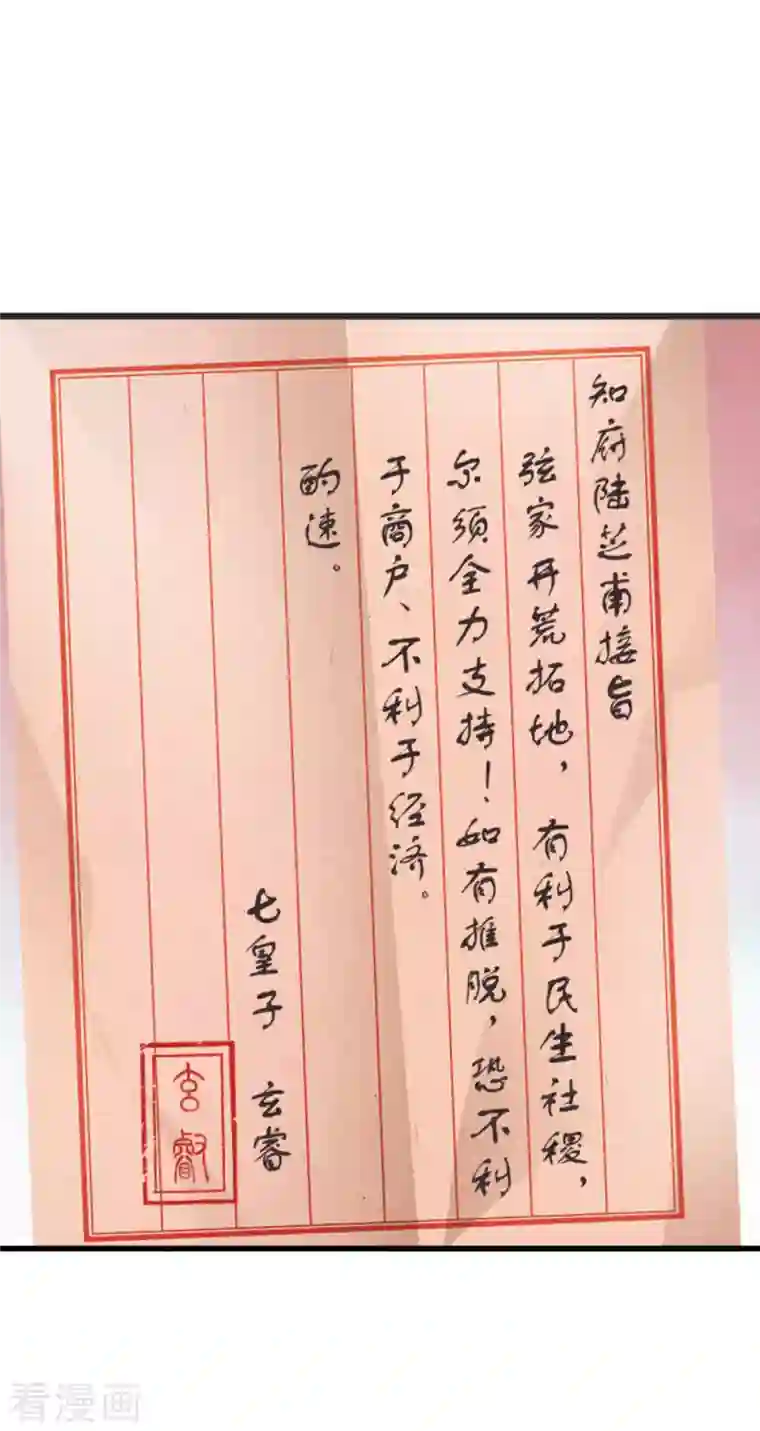 知府陆芝甫接旨
弦家开荒拓地，有利于民生社稷，
尔须全力支持！如有推脱，恐不利
于商户、不利于经济。
酌速。
七皇子 玄睿
玄叡
看漫画